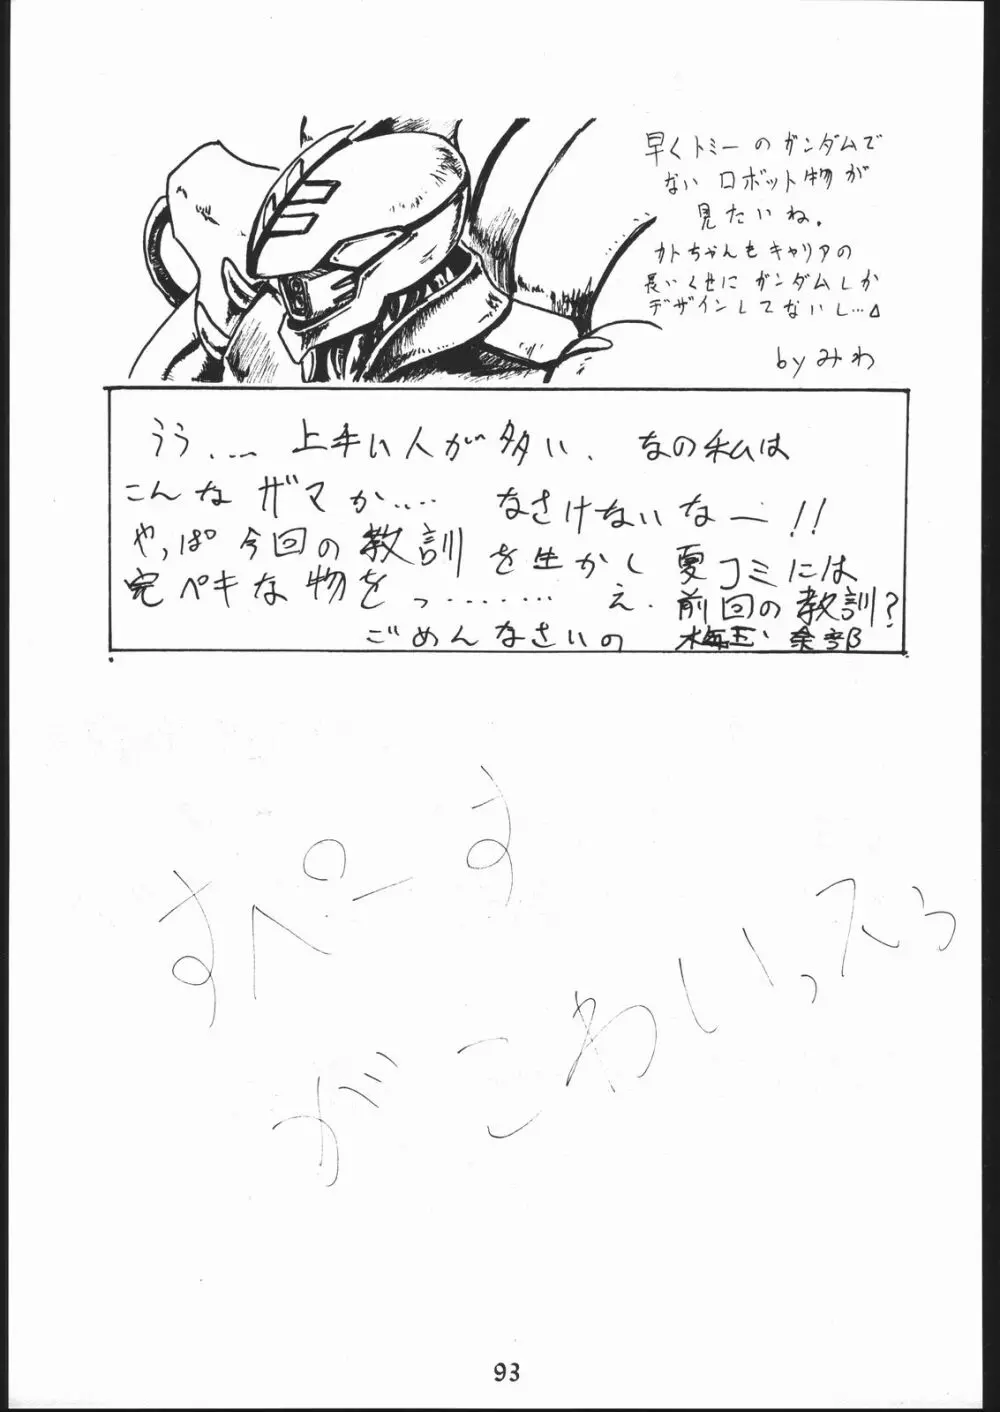 早くトミーのガンダムで
ない ロボット物が
見たいね。
カトちゃんもキャリアの
長いくせに ガンダムしか
デザインしてないし…
by みわ
うう.... 上手い人が多い、なの私は
こんなザマか.... なさけないなー!!
やっぱ今回の教訓を生かし 夏コミには
完ペキな物をっ........ え、前回の教訓?
ごめんなさいの
すぺーす
がこわいってう
93